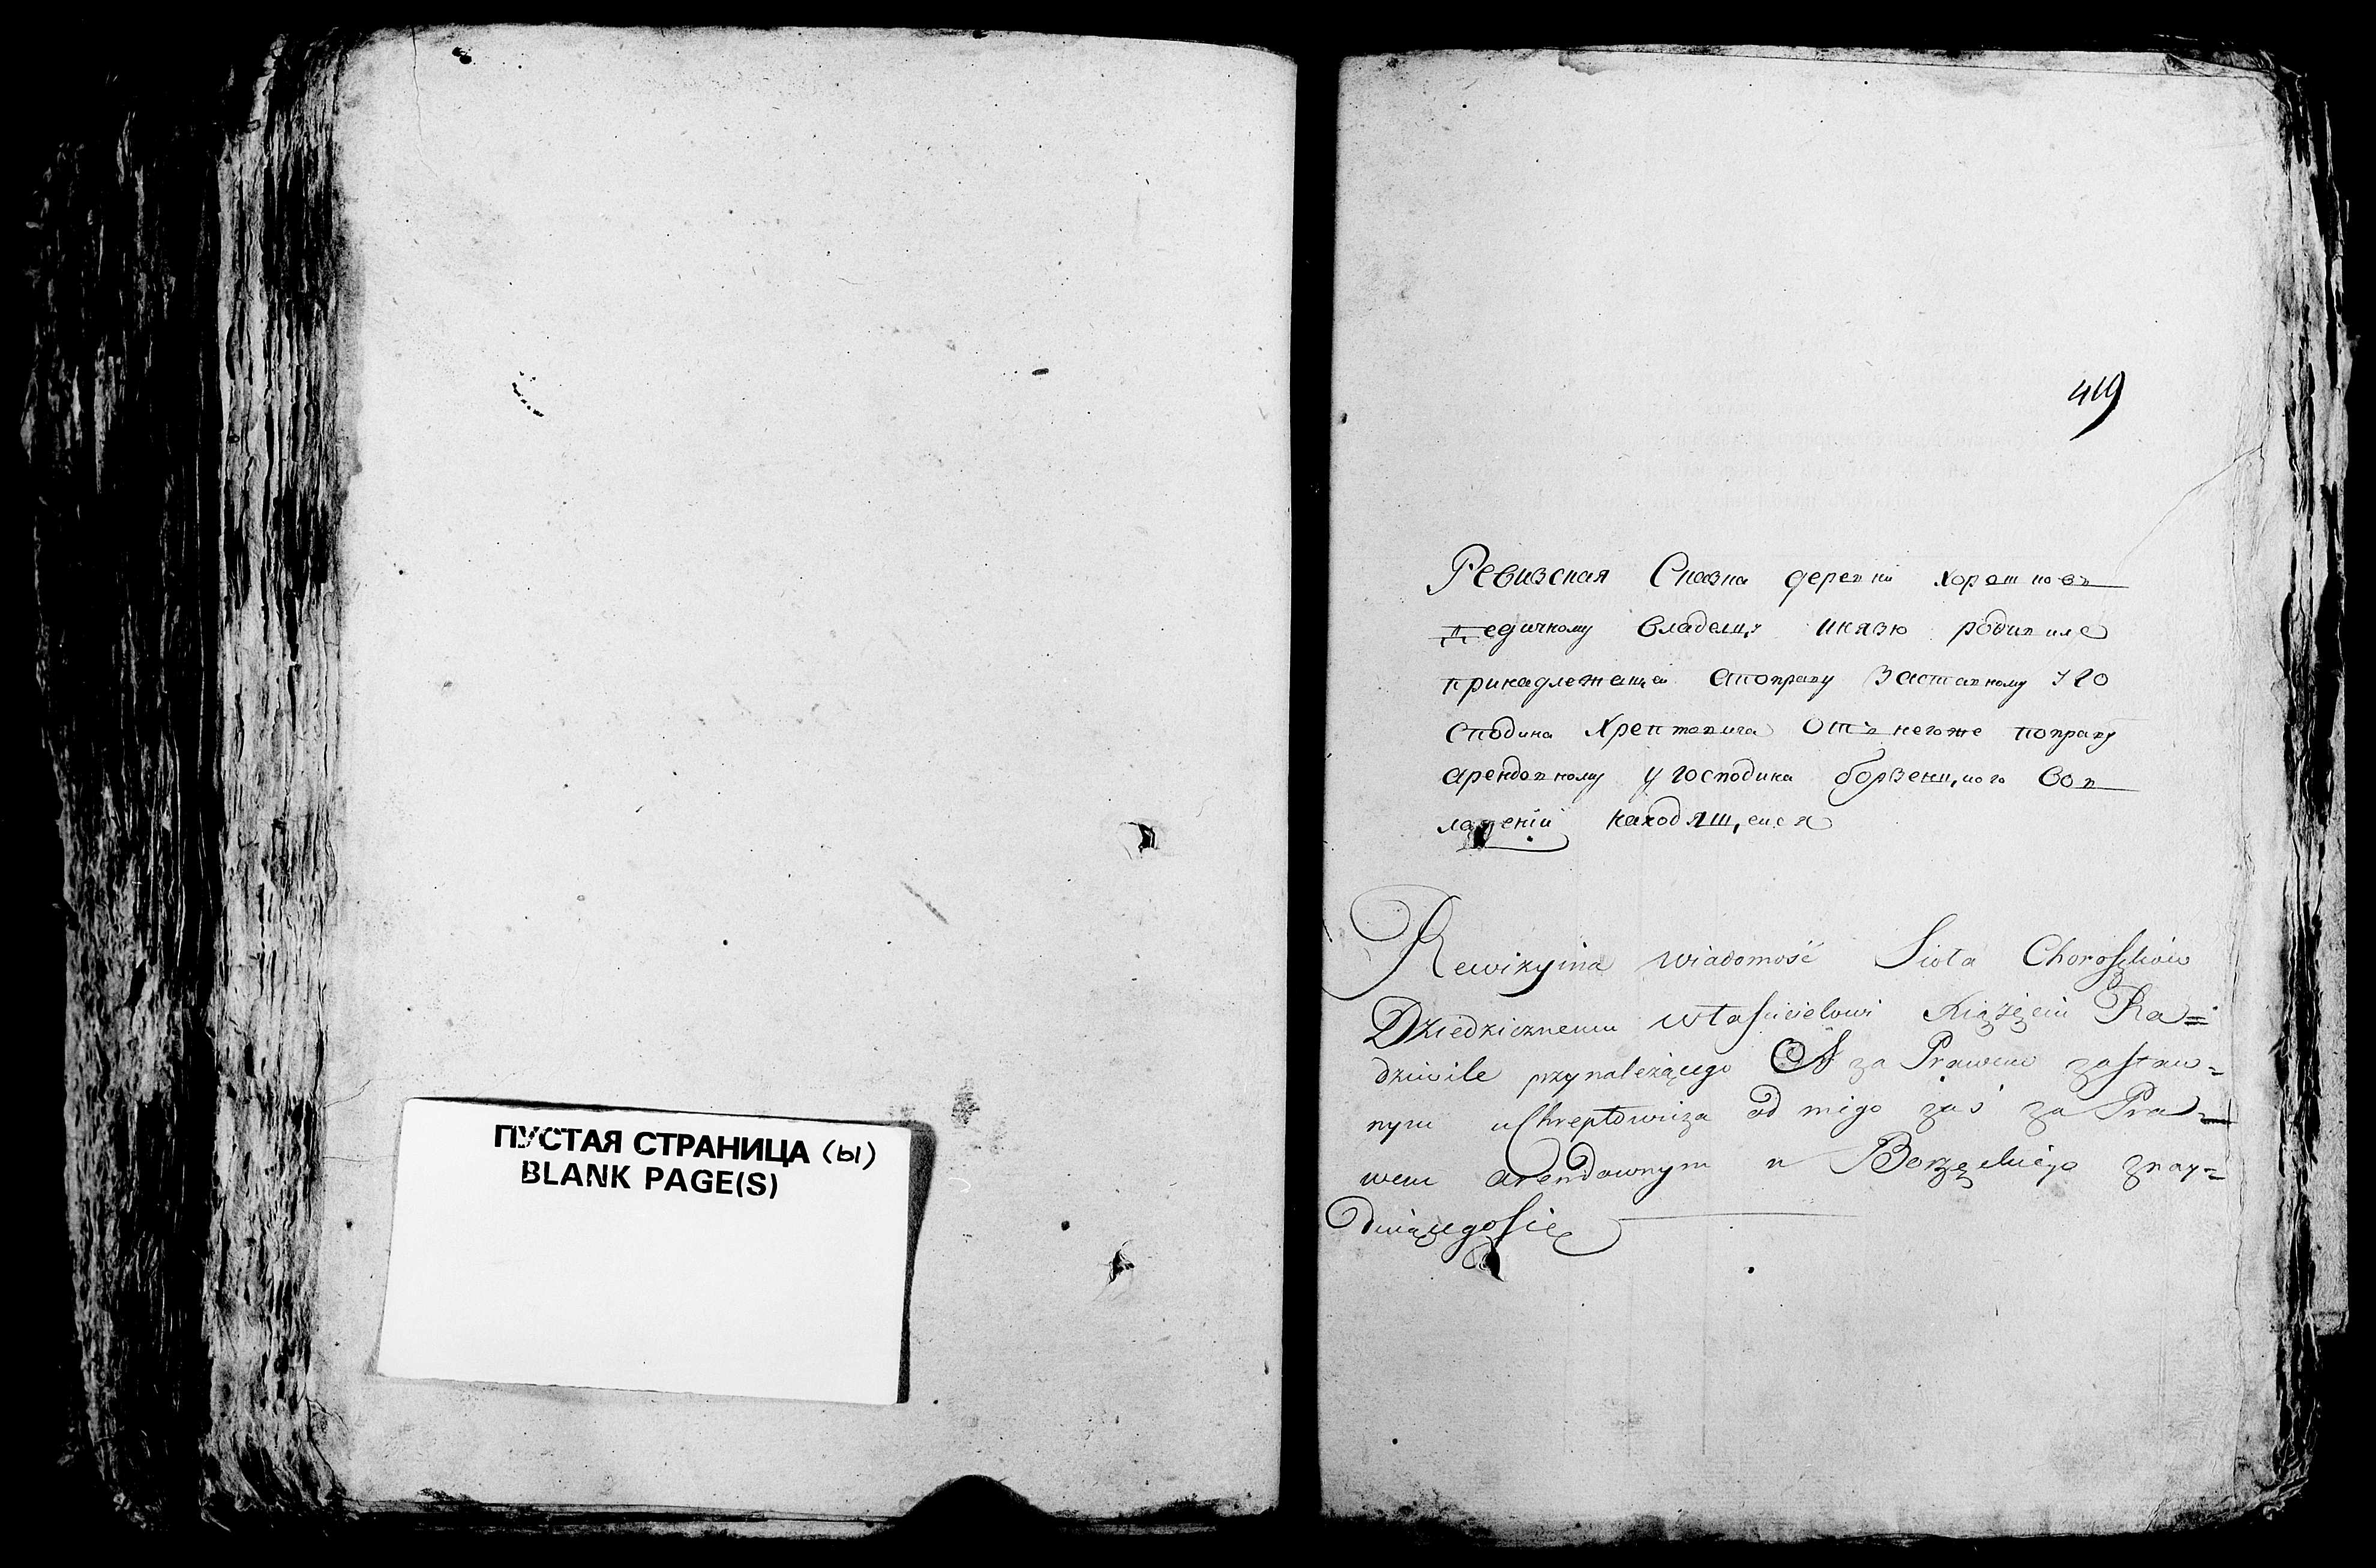 ПУСТАЯ СТРАНИЦА (ы)
BLANK PAGE(S)
419
Ревизская Сказка деревни Хорошковъ
дедичному владелцу князю родивиле
принадлежащеи апоправу Заставному уго
сподина Хрептовича Отъ негоже поправу
арендовному у господина борзенцкого Вов
ладении находящ,еися
Rewizyina wiadomość Sioła Choroszkow
Dziedzicznemu własćicielowi Xiązęciu Ra=
dziwile przynalezącego A za Prawem zastaw=
nym u Chreptowicza od niego zaś za Pra=
wem arendownym u Borzęckiego znay=
duiącego się